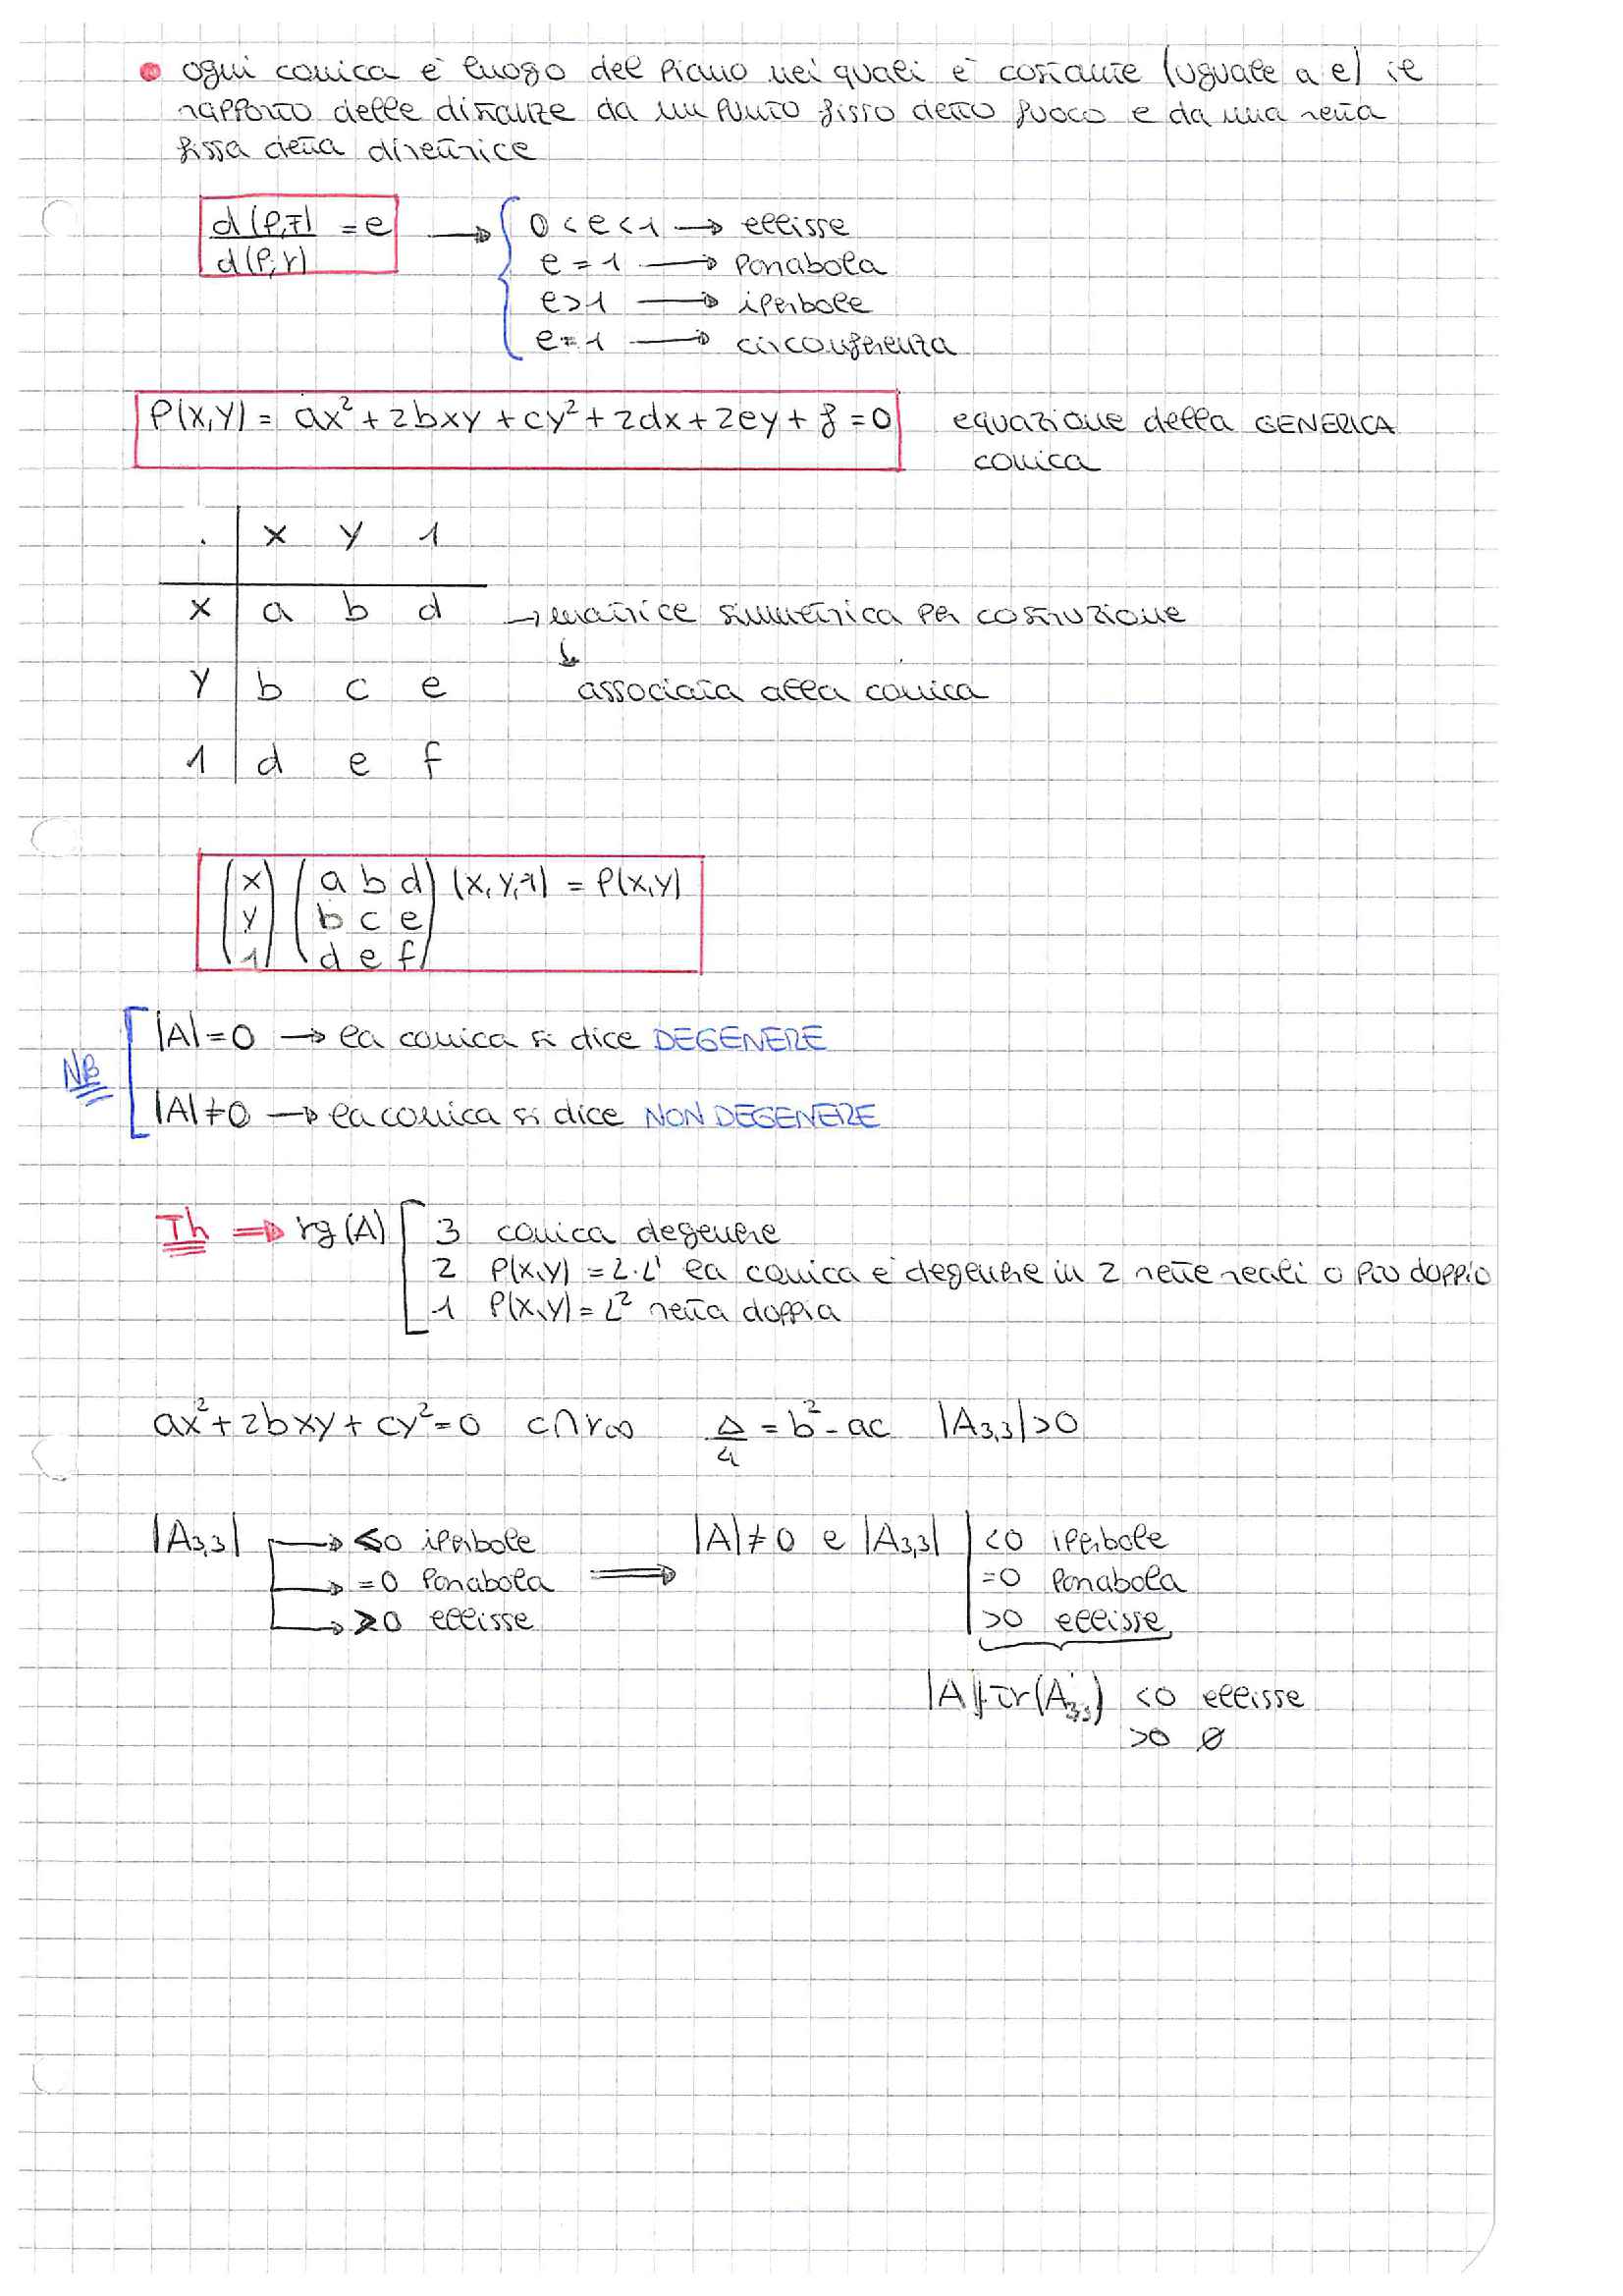 • ogni conica è luogo del piano nei quali è costante (uguale a e) il
rapporto delle distanze da un punto fisso detto fuoco e da una retta
fissa detta direttrice
d(P,F)/d(P,r) = e → { 0 < e < 1 → ellisse
e = 1 → Parabola
e > 1 → iperbole
e = 1 → circonferenza
P(x,y) = ax² + 2bxy + cy² + 2dx + 2ey + f = 0 equazione della GENERICA
conica
. | x y 1
x | a b d → matrice simmetrica per costruzione
↳ associata alla conica
y | b c e
1 | d e f
(x) (a b d) (x, y, 1) = P(x,y)
(y) (b c e)
(1) (d e f)
NB |A| = 0 → la conica si dice DEGENERE
|A| ≠ 0 → la conica si dice NON DEGENERE
Th ⇒ rg(A) [ 3 conica degenere
2 P(x,y) = L·L' la conica è degenere in 2 rette reali o pto doppio
1 P(x,y) = L² retta doppia
ax² + 2bxy + cy² = 0 C∩r∞ Δ/4 = b² - ac |A3,3| > 0
|A3,3| → ≤0 iperbole ⇒ |A| ≠ 0 e |A3,3| | <0 iperbole
→ =0 Parabola =0 Parabola
→ ≥0 ellisse >0 ellisse
|A|·Tr(A3,3) <0 ellisse
>0 ∅